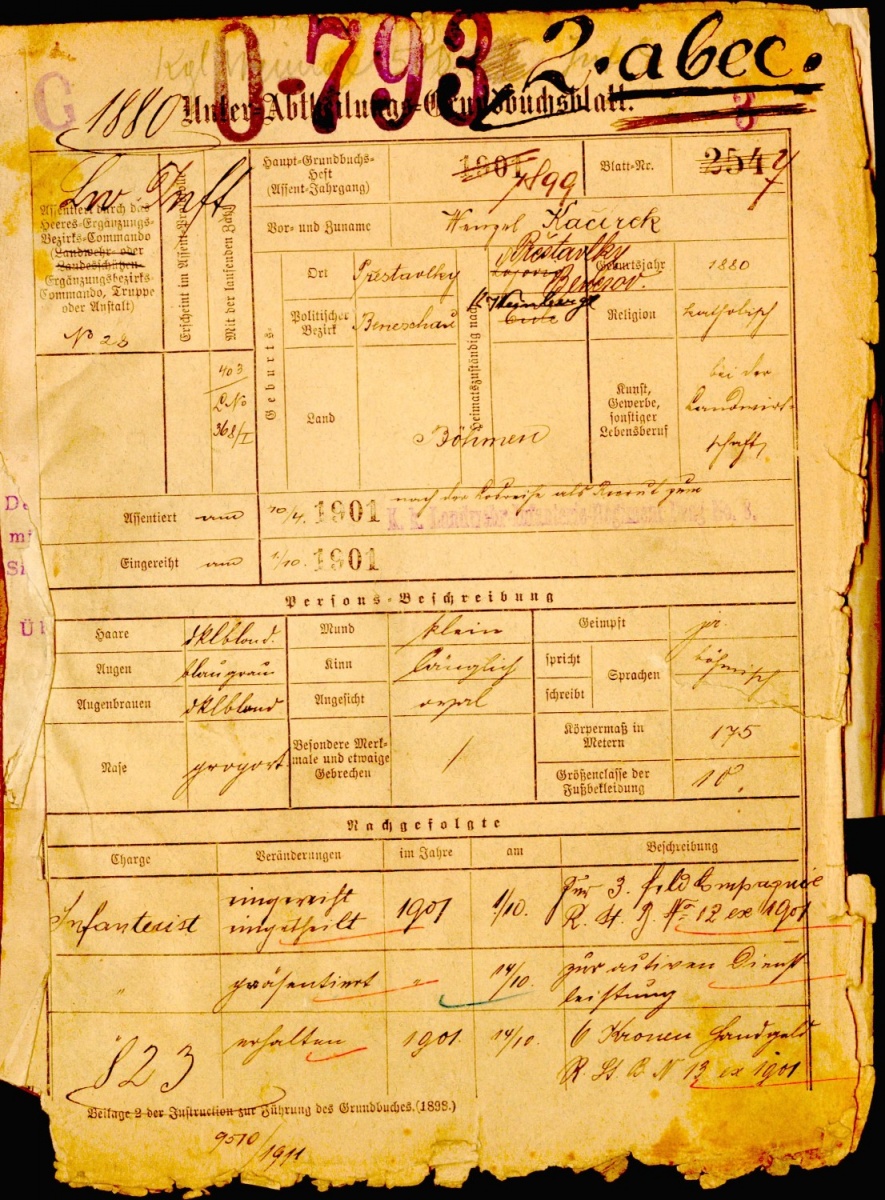 0-793
2. abec.
G
1880
Unter-Abtheilungs-Grundbuchsblatt.
3
Lw. Inft
Assentiert durch das
Heeres-Ergänzungs-
Bezirks-Commando
(Landwehr- oder
Landesschützen-
Ergänzungsbezirks-
Commando, Truppe
oder Anstalt)
No 28
Erscheint im Assent-Protokolle
Mit der laufenden Zahl
403
L No
368/I
Haupt-Grundbuchs-
Heft
(Assent-Jahrgang)
1901
1899
Blatt-Nr.
254
Vor- und Zuname
Wenzel Kačirek
Geburts-
Ort
Přestavlky
Politischer
Bezirk
Beneschau
Land
Böhmen
Heimatszuständig nach
Přestavlky
Benešov.
K. Weinberge
Geburtsjahr
1880
Religion
katholisch
Kunst,
Gewerbe,
sonstiger
Lebensberuf
bei der
Landwirt-
schaft
Assentiert am 10/4. 1901 nach der Losreihe als Recrut zum
K. k. Landwehr-Infanterie-Regiment Prag No. 8.
Eingereiht am 1/10. 1901
Persons-Beschreibung
Haare dklblond. Mund klein Geimpft ja.
Augen blaugrau Kinn länglich spricht
schreibt Sprachen böhmisch
Augenbrauen dklblond Angesicht oval
Nase proport.
Besondere Merk-
male und etwaige
Gebrechen /
Körpermaß in
Metern 175
Größenclasse der
Fußbekleidung 10.
Nachgefolgte
Charge Veränderungen im Jahre am Beschreibung
Infanterist eingereiht
eingetheilt 1901 1/10. Zur 3. Feldkompagnie
R. St. B. No. 12 ex 1901
" präsentiert " 14/10. zur activen Dienst-
leistung
erhalten 1901. 14/10. 6 Kronen Handgeld
R. St. B. N 13 ex 1901
823
Beilage 2 der Instruction zur Führung des Grundbuches. (1898.)
9510/1911